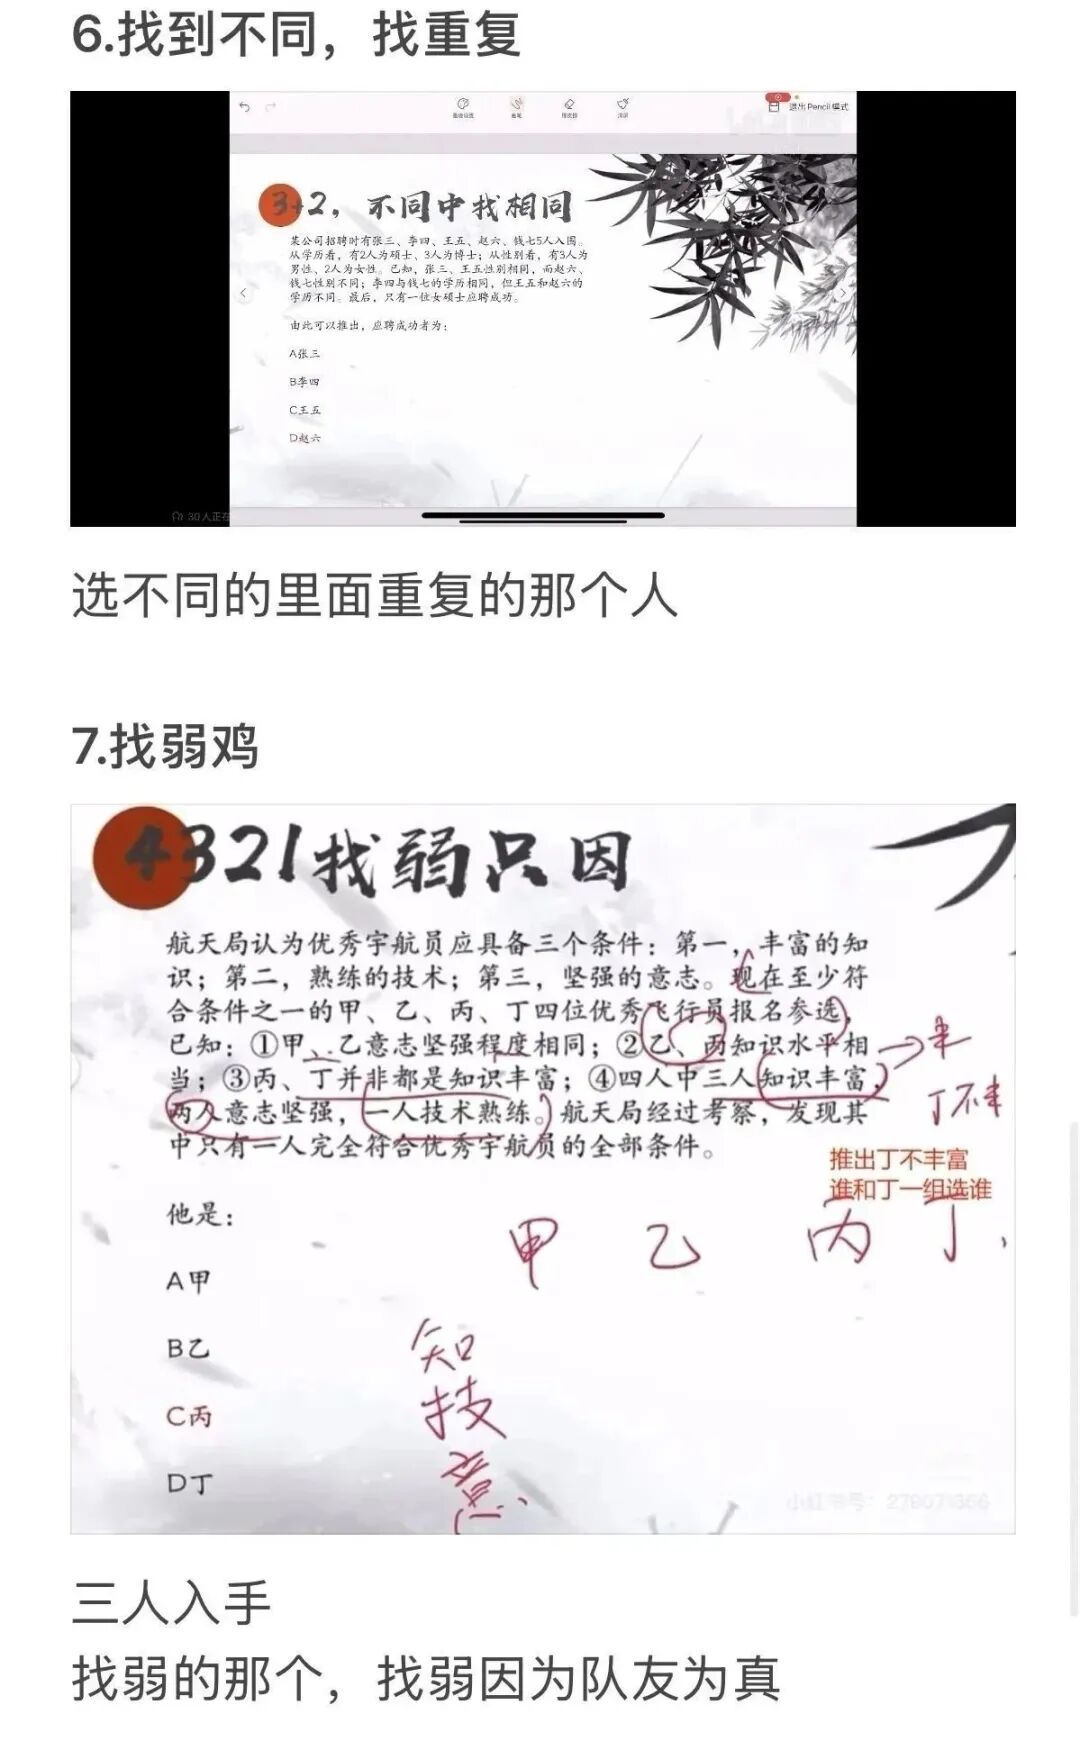 6.找到不同，找重复
退出Pencil模式
3+2，不同中找相同
某公司招聘时有张三、李四、王五、赵六、钱七5人入围。
从学历看，有2人为硕士、3人为博士；从性别看，有3人为
男性、2人为女性。已知，张三、王五性别相同，而赵六、
钱七性别不同；李四与钱七的学历相同，但王五和赵六的
学历不同。最后，只有一位女硕士应聘成功。
由此可以推出，应聘成功者为：
A张三
B李四
C王五
D赵六
30人正在
选不同的里面重复的那个人
7.找弱鸡
4321找弱只因
航天局认为优秀宇航员应具备三个条件：第一，丰富的知
识；第二，熟练的技术；第三，坚强的意志。现在至少符
合条件之一的甲、乙、丙、丁四位优秀飞行员报名参选，
已知：①甲、乙意志坚强程度相同；②乙、丙知识水平相
当；③丙、丁并非都是知识丰富；④四人中三人知识丰富，
两人意志坚强，一人技术熟练。航天局经过考察，发现其
中只有一人完全符合优秀宇航员的全部条件。
丰
丁不丰
推出丁不丰富
谁和丁一组选谁
他是：
甲 乙 丙 丁
A甲
B乙
C丙
D丁
知
技
意
小红书号：279071356
三人入手
找弱的那个，找弱因为队友为真